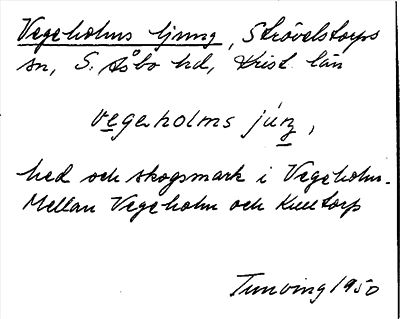 Vegeholms ljung, Strövelstorps
sn, S. Åsbo hd, Krist. län
vegeholms júŋ,
hed och skogsmark i Vegeholm.
Mellan Vegeholm och Kulltorp
Tunving 1950